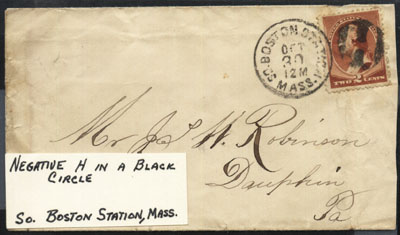 SO. BOSTON STATION.
OCT
30
12M
MASS.
TWO 2 CENTS
Mr Jas W. Robinson
Dauphin
Pa
NEGATIVE H IN A BLACK
CIRCLE
SO. BOSTON STATION, MASS.